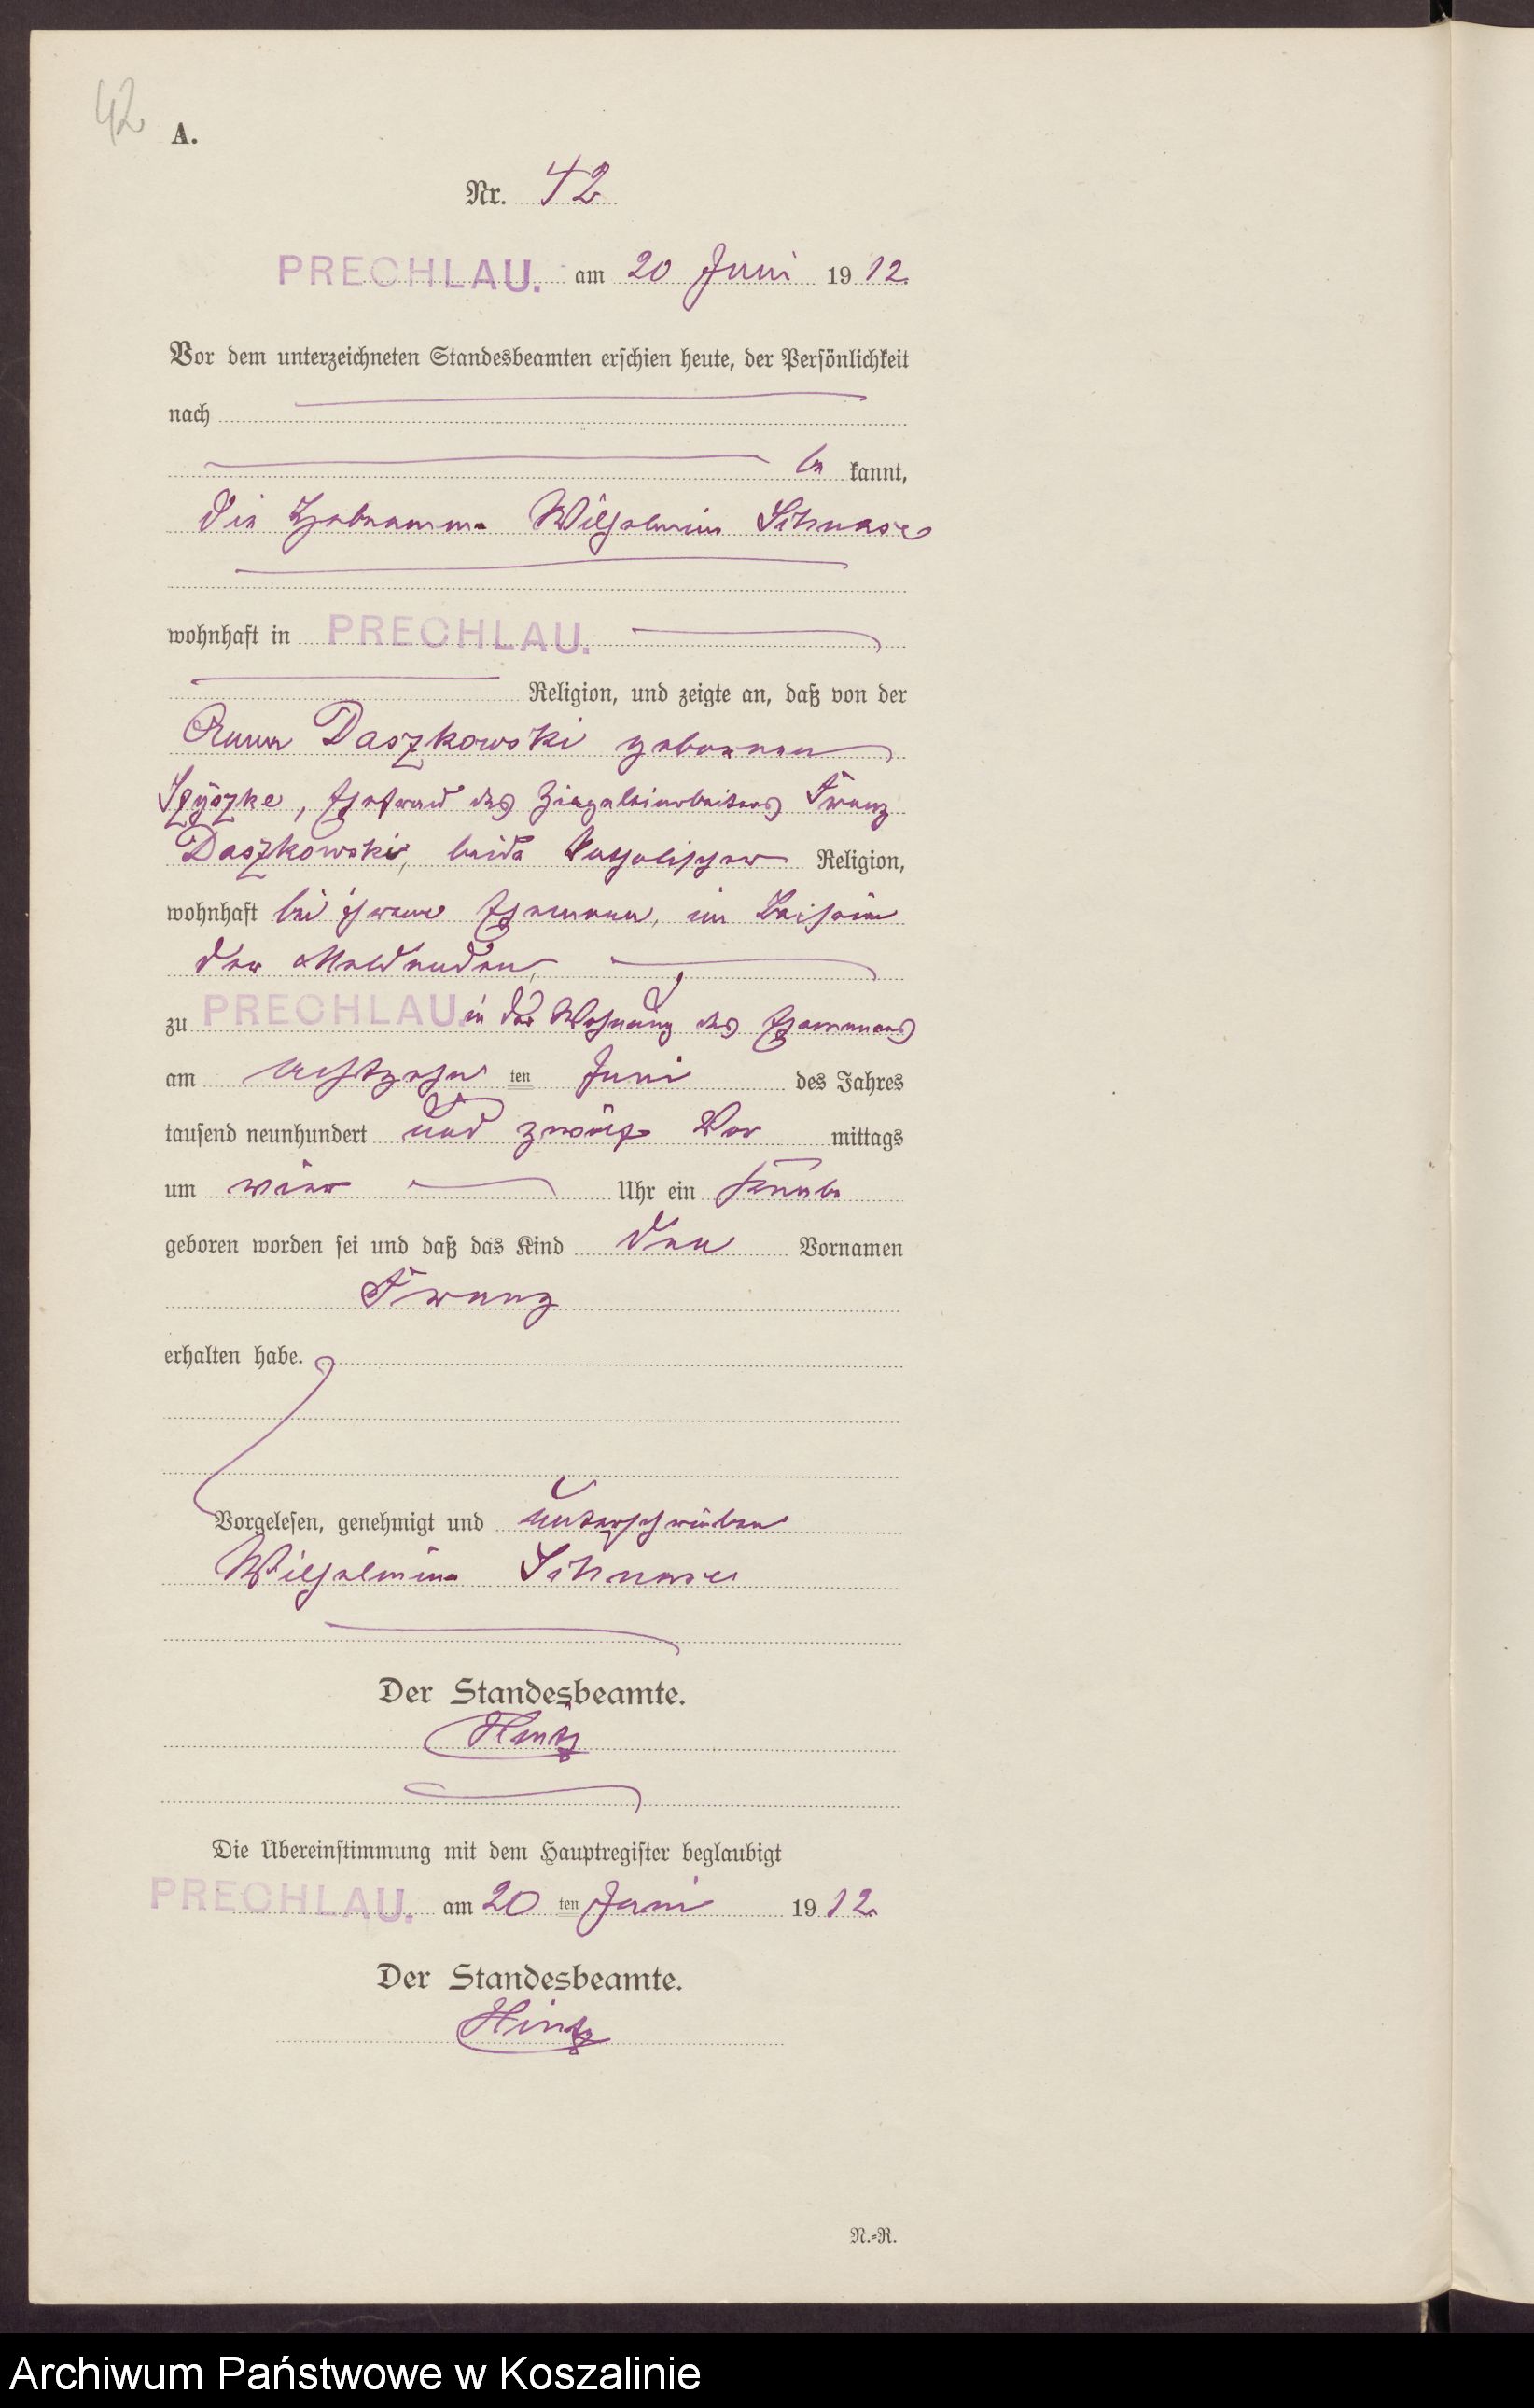 42
A.
Nr. 42
PRECHLAU. am 20 Juni 1912.
Vor dem unterzeichneten Standesbeamten erschien heute, der Persönlichkeit
nach
be kannt,
die Hebamme Wilhelmine
wohnhaft in PRECHLAU.
Religion, und zeigte an, daß von der
Anna Daszkowski geborenen
Szyszke, Ehefrau des Ziegeleiarbeiters Franz
Daszkowski, beide katholischer Religion,
wohnhaft bei ihrem Ehemann, im Beisein
der Meldenden,
zu PRECHLAU. in der Wohnung des Ehemannes
am achtzehn ten Juni des Jahres
tausend neunhundert und zwölf Vor mittags
um vier Uhr ein Knabe
geboren worden sei und daß das Kind den Vornamen
Franz
erhalten habe.
Vorgelesen, genehmigt und unterschrieben
Wilhelmine
Der Standesbeamte.
Hintz
Die Übereinstimmung mit dem Hauptregister beglaubigt
PRECHLAU. am 20 ten Juni 1912.
Der Standesbeamte.
Hintz
N.=R.
Archiwum Państwowe w Koszalinie